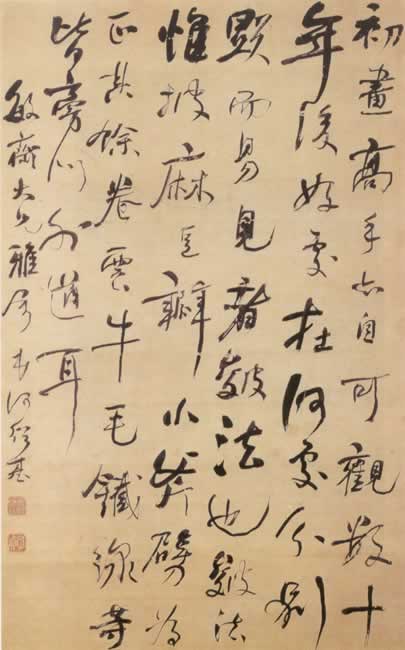 初畫高手亦自可觀數十
年後好處在何處分別
顯而易見者皴法也皴法
惟披麻豆瓣小斧劈為
正其餘卷雲牛毛鐵線等
皆旁門外道耳
敏齋大兄雅屬 弟何紹基